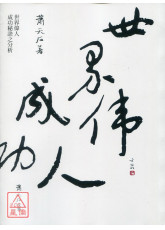 世界伟人
成功
蕭天石著
世界偉人
成功秘訣之分析